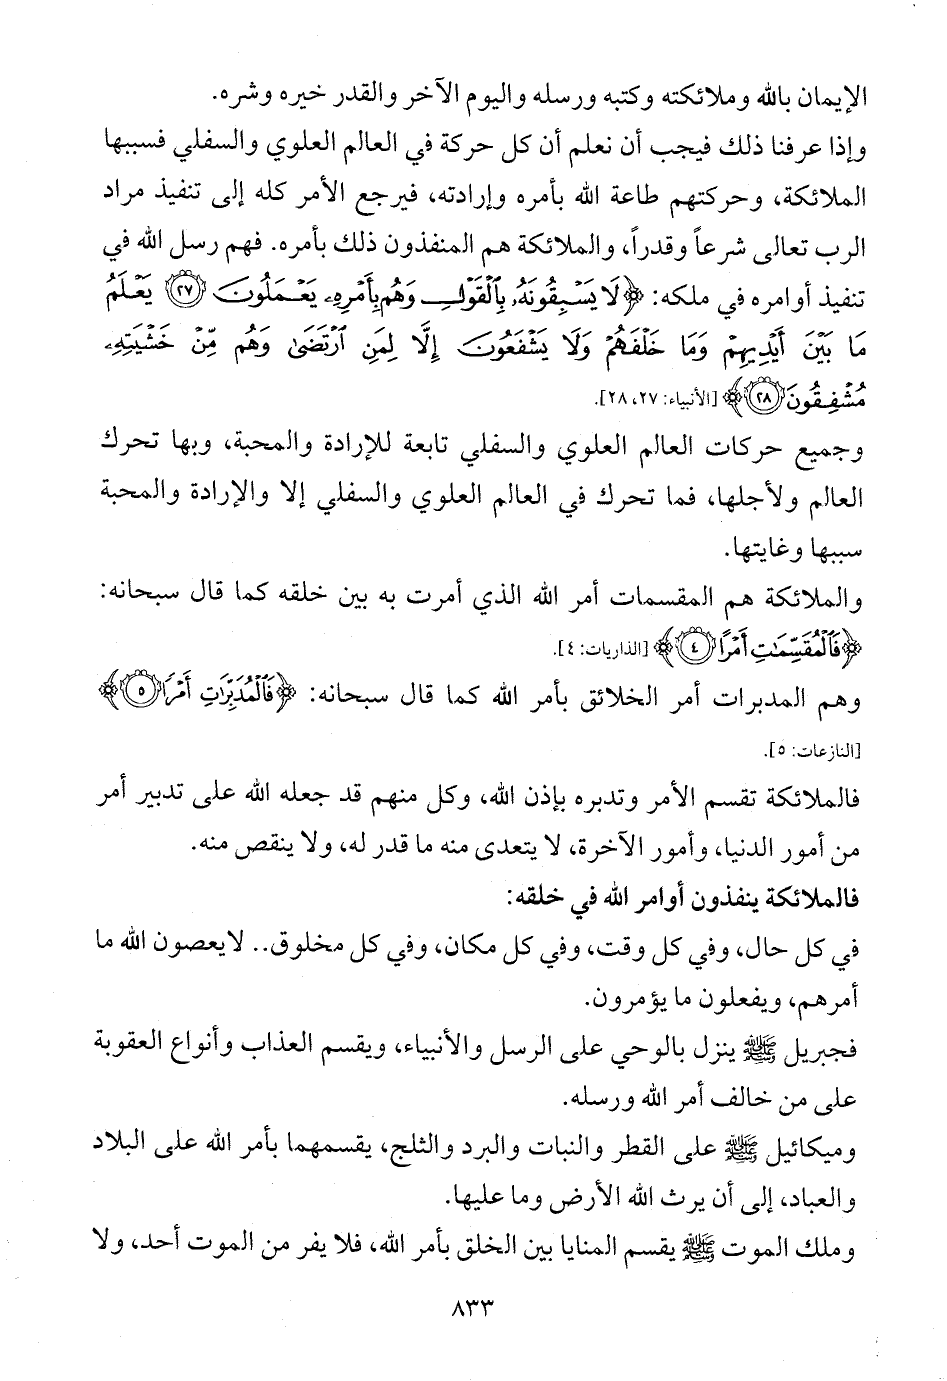 الإيمان بالله وملائكته وكتبه ورسله واليوم الآخر والقدر خيره وشره.
وإذا عرفنا ذلك فيجب أن نعلم أن كل حركة في العالم العلوي والسفلي فسببها
الملائكة، وحركتهم طاعة الله بأمره وإرادته، فيرجع الأمر كله إلى تنفيذ مراد
الرب تعالى شرعاً وقدراً، والملائكة هم المنفذون ذلك بأمره. فهم رسل الله في
تنفيذ أوامره في ملكه: ﴿لَا يَسْبِقُونَهُۥ بِٱلْقَوْلِ وَهُم بِأَمْرِهِۦ يَعْمَلُونَ ٢٧ يَعْلَمُ
مَا بَيْنَ أَيْدِيهِمْ وَمَا خَلْفَهُمْ وَلَا يَشْفَعُونَ إِلَّا لِمَنِ ٱرْتَضَىٰ وَهُم مِّنْ خَشْيَتِهِۦ
مُشْفِقُونَ ٢٨﴾ [الأنبياء: ٢٧، ٢٨].
وجميع حركات العالم العلوي والسفلي تابعة للإرادة والمحبة، وبها تحرك
العالم ولأجلها، فما تحرك في العالم العلوي والسفلي إلا والإرادة والمحبة
سببها وغايتها.
والملائكة هم المقسمات أمر الله الذي أمرت به بين خلقه كما قال سبحانه:
﴿فَٱلْمُقَسِّمَٰتِ أَمْرًا ٤﴾ [الذاريات: ٤].
وهم المدبرات أمر الخلائق بأمر الله كما قال سبحانه: ﴿فَٱلْمُدَبِّرَٰتِ أَمْرًا ٥﴾
[النازعات: ٥].
فالملائكة تقسم الأمر وتدبره بإذن الله، وكل منهم قد جعله الله على تدبير أمر
من أمور الدنيا، وأمور الآخرة، لا يتعدى منه ما قدر له، ولا ينقص منه.
فالملائكة ينفذون أوامر الله في خلقه:
في كل حال، وفي كل وقت، وفي كل مكان، وفي كل مخلوق.. لا يعصون الله ما
أمرهم، ويفعلون ما يؤمرون.
فجبريل ﷺ ينزل بالوحي على الرسل والأنبياء، ويقسم العذاب وأنواع العقوبة
على من خالف أمر الله ورسله.
وميكائيل ﷺ على القطر والنبات والبرد والثلج، يقسمهما بأمر الله على البلاد
والعباد، إلى أن يرث الله الأرض وما عليها.
وملك الموت ﷺ يقسم المنايا بين الخلق بأمر الله، فلا يفر من الموت أحد، ولا
٨٣٣